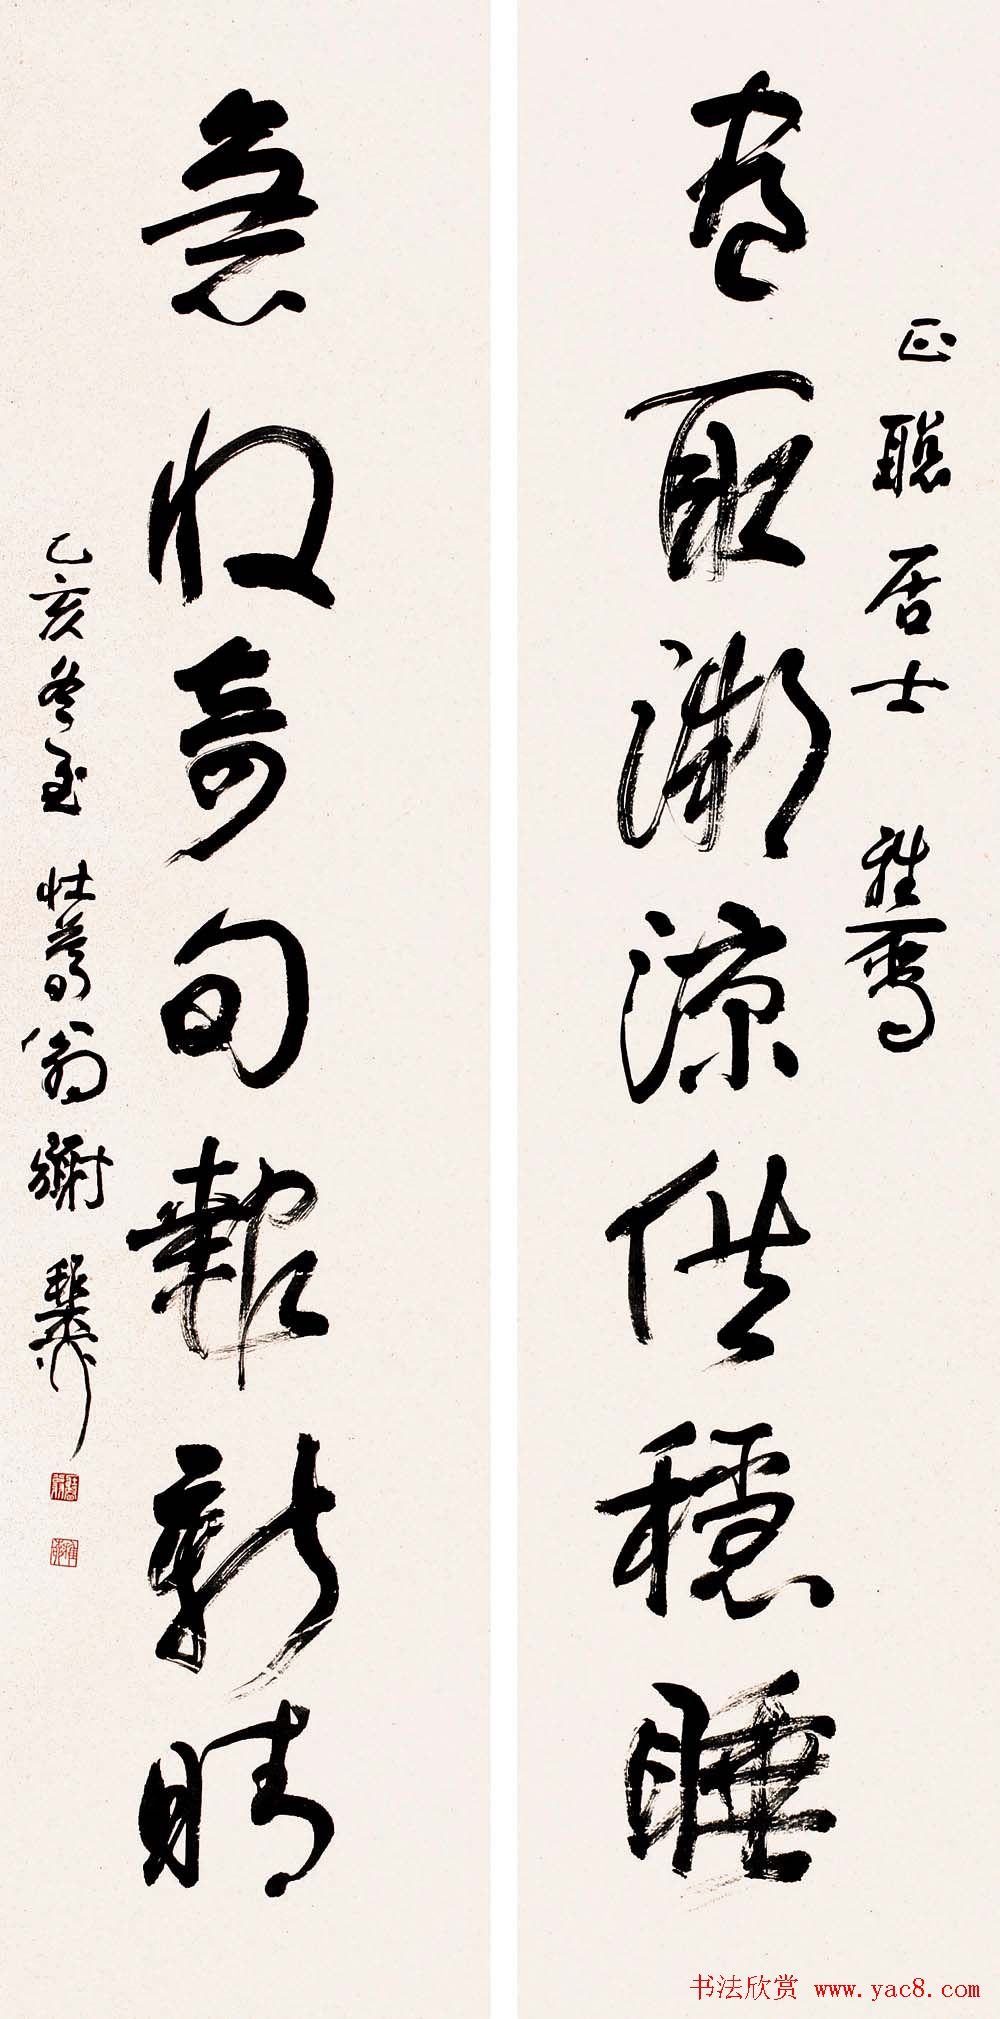 正聰居士雅屬
盡取微涼供穩睡
急收奇句報新晴
乙亥冬至壯暮翁謝稚柳
书法欣赏 www.yac8.com